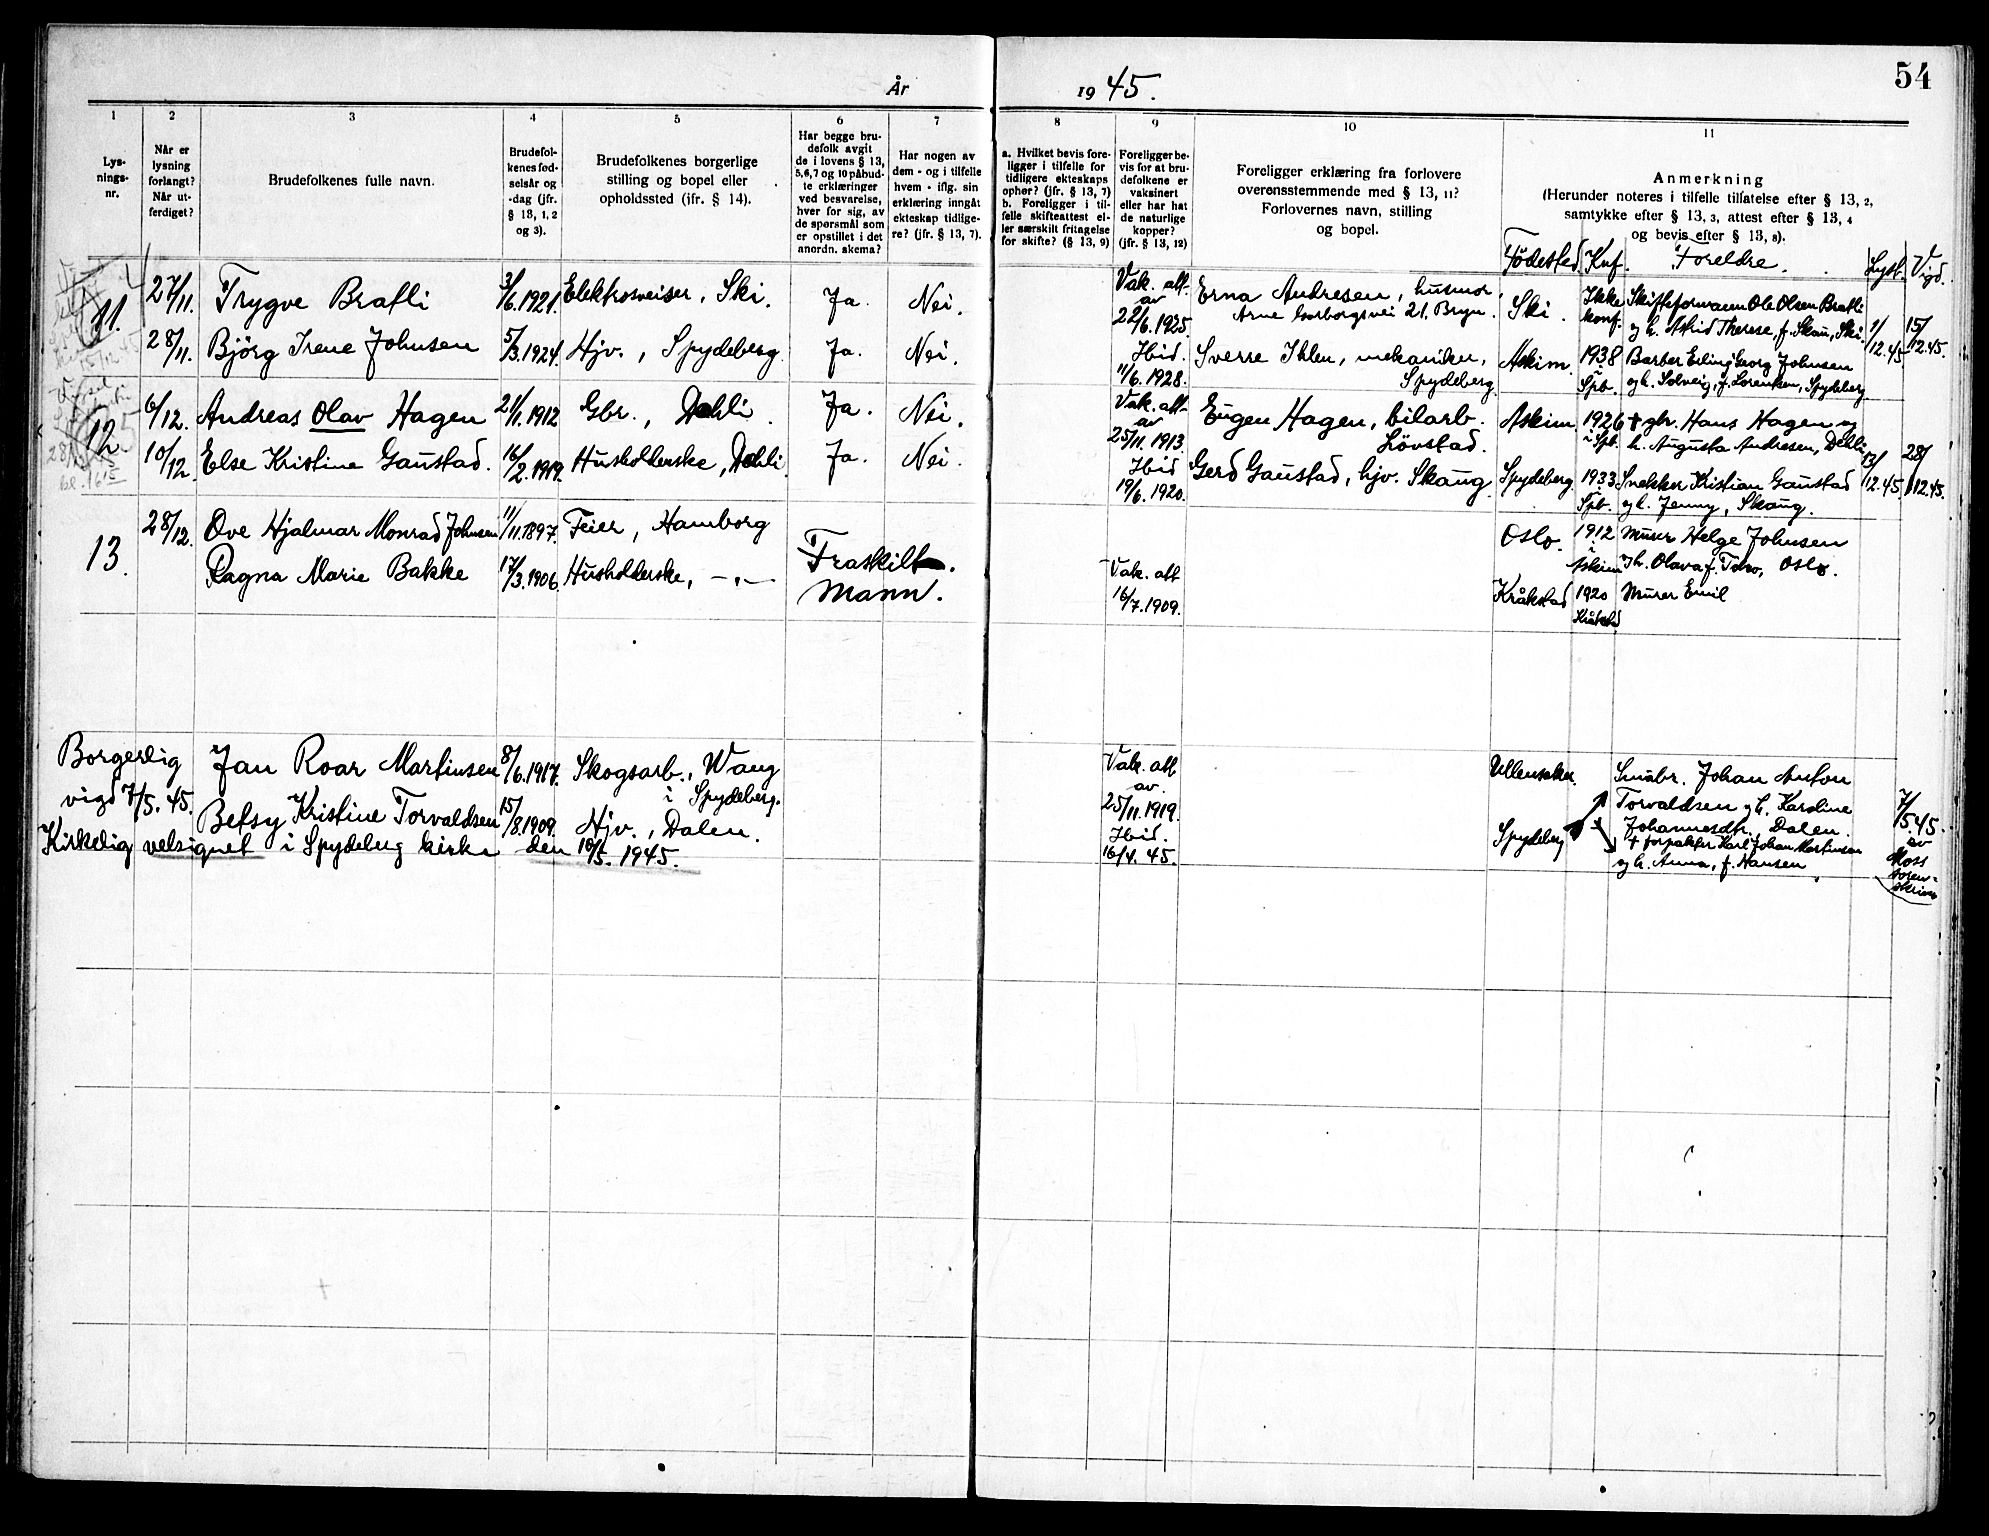 54
År 1945.
1 2 3 4 5 6 7 8 9 10 11
Lys-
nings-
nr.
Når er
lysning
forlangt?
Når ut-
ferdiget?
Brudefolkenes fulle navn.
Brudefol-
kenes fød-
selsår og
-dag (jfr.
§ 13, 1, 2
og 3).
Brudefolkenes borgerlige
stilling og bopel eller
opholdssted (jfr. § 14).
Har begge bru-
defolk avgit
de i lovens § 13,
5,6,7 og 10 påbud-
te erklæringer
ved besvarelse,
hver for sig, av
de spørsmål som
er opstillet i det
anordn. skema?
Har nogen av
dem - og i tilfelle
hvem - iflg. sin
erklæring inngåt
ekteskap tidlige-
re? (jfr. § 13, 7).
a. Hvilket bevis fore-
ligger i tilfelle for
tidligere ekteskaps
ophør? (jfr. § 13, 7)
b. Foreligger i til-
felle skifteattest el-
ler særskilt fritagelse
for skifte? (§ 13, 9)
Foreligger be-
vis for at bru-
defolkene er
vaksinert
eller har hat
de naturlige
kopper?
(jfr. § 13, 12)
Foreligger erklæring fra forlovere
overensstemmende med § 13, 11?
Forlovernes navn, stilling
og bopel.
Anmerkning
(Herunder noteres i tilfelle tillatelse efter § 13, 2,
samtykke efter § 13, 3, attest efter § 13, 4
og bevis efter § 13, 8).
Födested. Knf. Foreldre. Lyst. Vigd.
11.
27/11. Trygve Brafli
3/6.1921. Elektrosveiser, Ski.
Ja. Nei.
Vak. att.
av
22/6.1925.
Erna Andresen, husmor,
Arne Garborgsvei 21. Bryn.
Ski.
Ikke
konf.
Ole Olsen Brafli
og h. Astrid Therese, f. Skau, Ski.
1/12.45. 15/12.45.
28/11. Björg Irene Johnsen
5/3.1924. Hjv., Spydeberg.
Ja. Nei.
Ibid.
11/6.1928.
Sverre Ihlen, mekaniker,
Spydeberg.
Askim. 1938
Spb.
Barber Erling Georg Johnsen
og h. Solveig, f. Lorentsen, Spydeberg
12
6/12. Andreas Olav Hagen
21/1.1912 Gbr., Dehli.
Ja. Nei.
Vak. att.
av
25/11.1913.
Eugen Hagen, bilarb.
Lövstad.
Askim 1926
i Spb.
† gbr. Hans Hagen og
h. Augusta Andresen, Dehli
13/12.45. 28/12.45.
10/12. Else Kristine Gaustad.
16/2.1919. Husholderske, Dehli
Ja. Nei.
Ibid
19/6.1920.
Gerd Gaustad, hjv. Skaug.
Spydeberg. 1933
Spb.
Snekker Kristian Gaustad
og h. Jenny, Skaug.
13.
28/12. Ove Hjalmar Monrad Johnsen
11/11.1897. Feier, Hamborg
Fraskilt
mann.
Oslo. 1912
i
Askim
Murer Helge Johnsen
h. Olava f. Toso, Oslo.
Ragna Marie Bakke
17/3.1906. Husholderske, -"-
Vak. att
16/7.1909.
Kråkstad 1920
Kråkstad
Murer Emil
Borgerlig
vigd 7/5.45.
Jan Roar Martinsen
8/6.1917. Skogsarb., Wang
i Spydeberg.
Vak. att
av.
25/11.1919.
Ullensaker
Småbr. Johan Anton
Torvaldsen og h. Karoline
Johannesdtr., Dalen.
Betsy Kristine Torvaldsen
15/8.1909. Hjv., Dalen.
Ibid.
16/4.45.
Spydeberg
† forpakter Karl Johan Martinsen
og h. Anna, f. Hansen
7/5.45.
av
Moss
soren-
skriver
Kirkelig velsignet i Spydeberg kirke den 10/5. 1945.